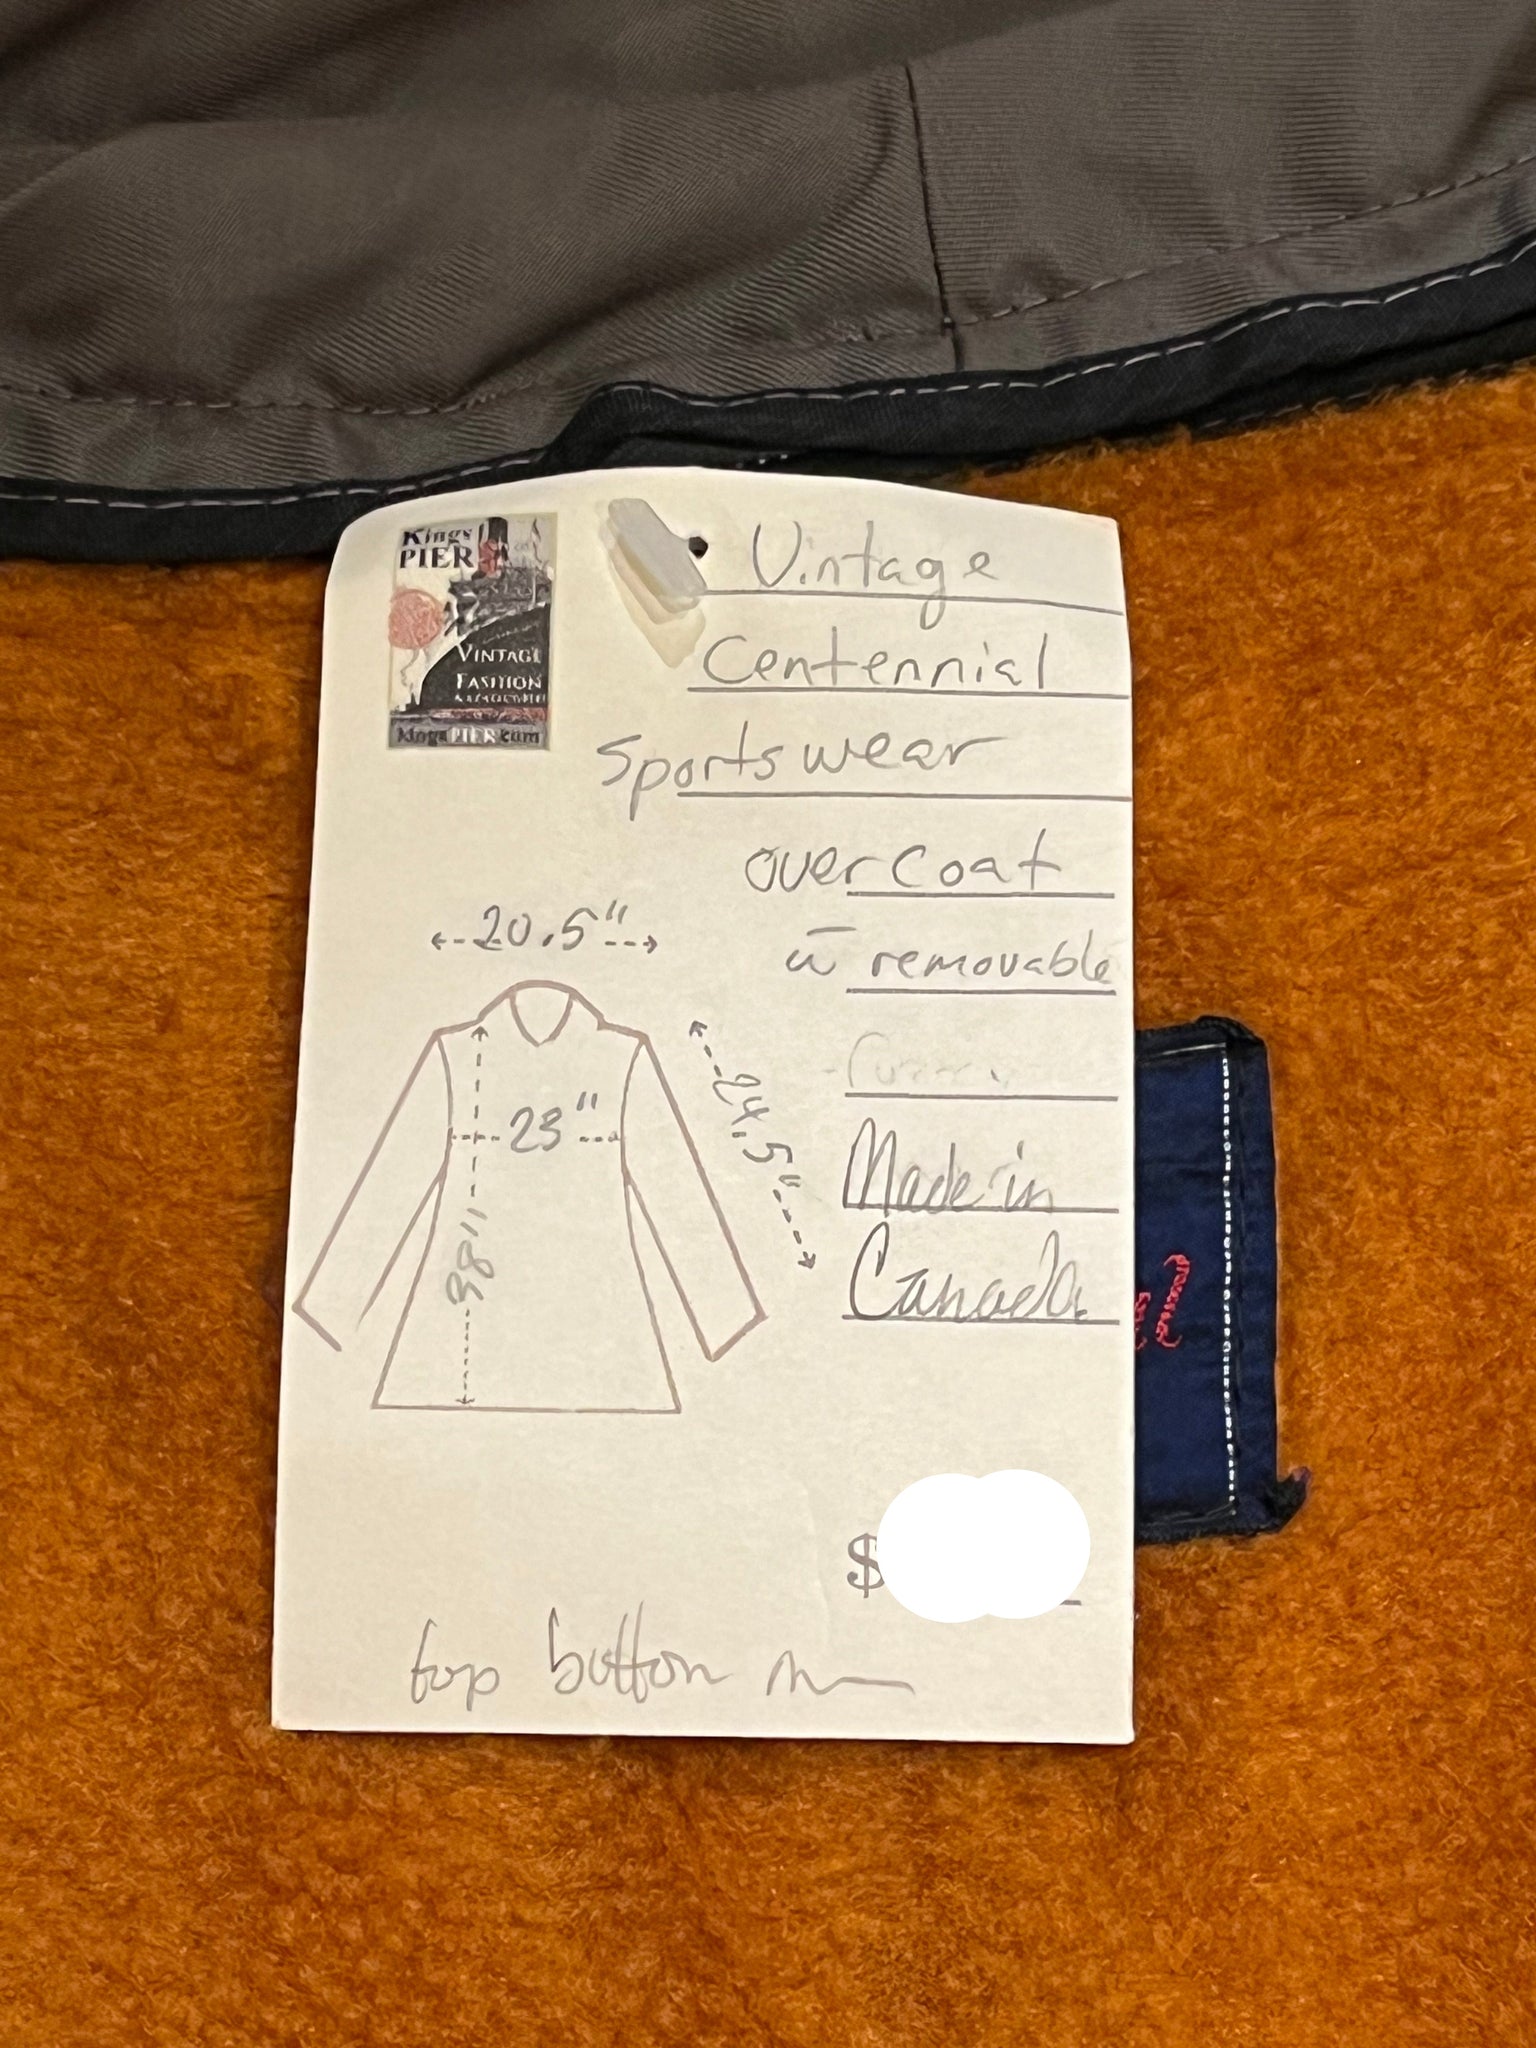 Kings
PIER
VINTAGE
FASHION
KingsPIER.com
Vintage
Centennial
Sportswear
overcoat
w̄ removable
Made in
Canada
20.5"
23"
24.5"
38"
$
top button